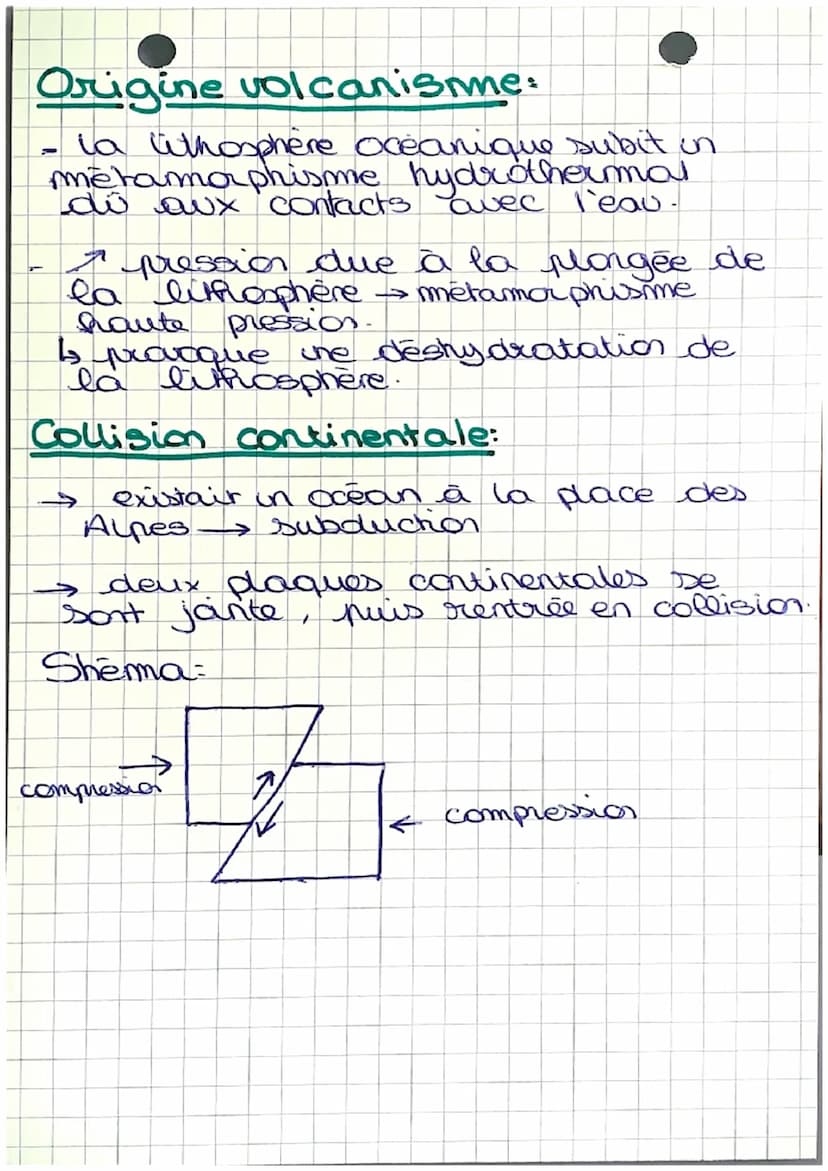 Origine volcanisme:
- la lithosphère océanique subit un
métamorphisme hydrothermal
dû aux contacts avec l'eau.
- ↗ pression due à la plongée de
la lithosphère → métamorphisme
haute pression.
↳ provoque une déshydratation de
la lithosphère.
Collision continentale:
→ existait un océan à la place des
Alpes → subduction
→ deux plaques continentales se
sont jointe, puis rentrée en collision.
Shéma:
compression
← compression